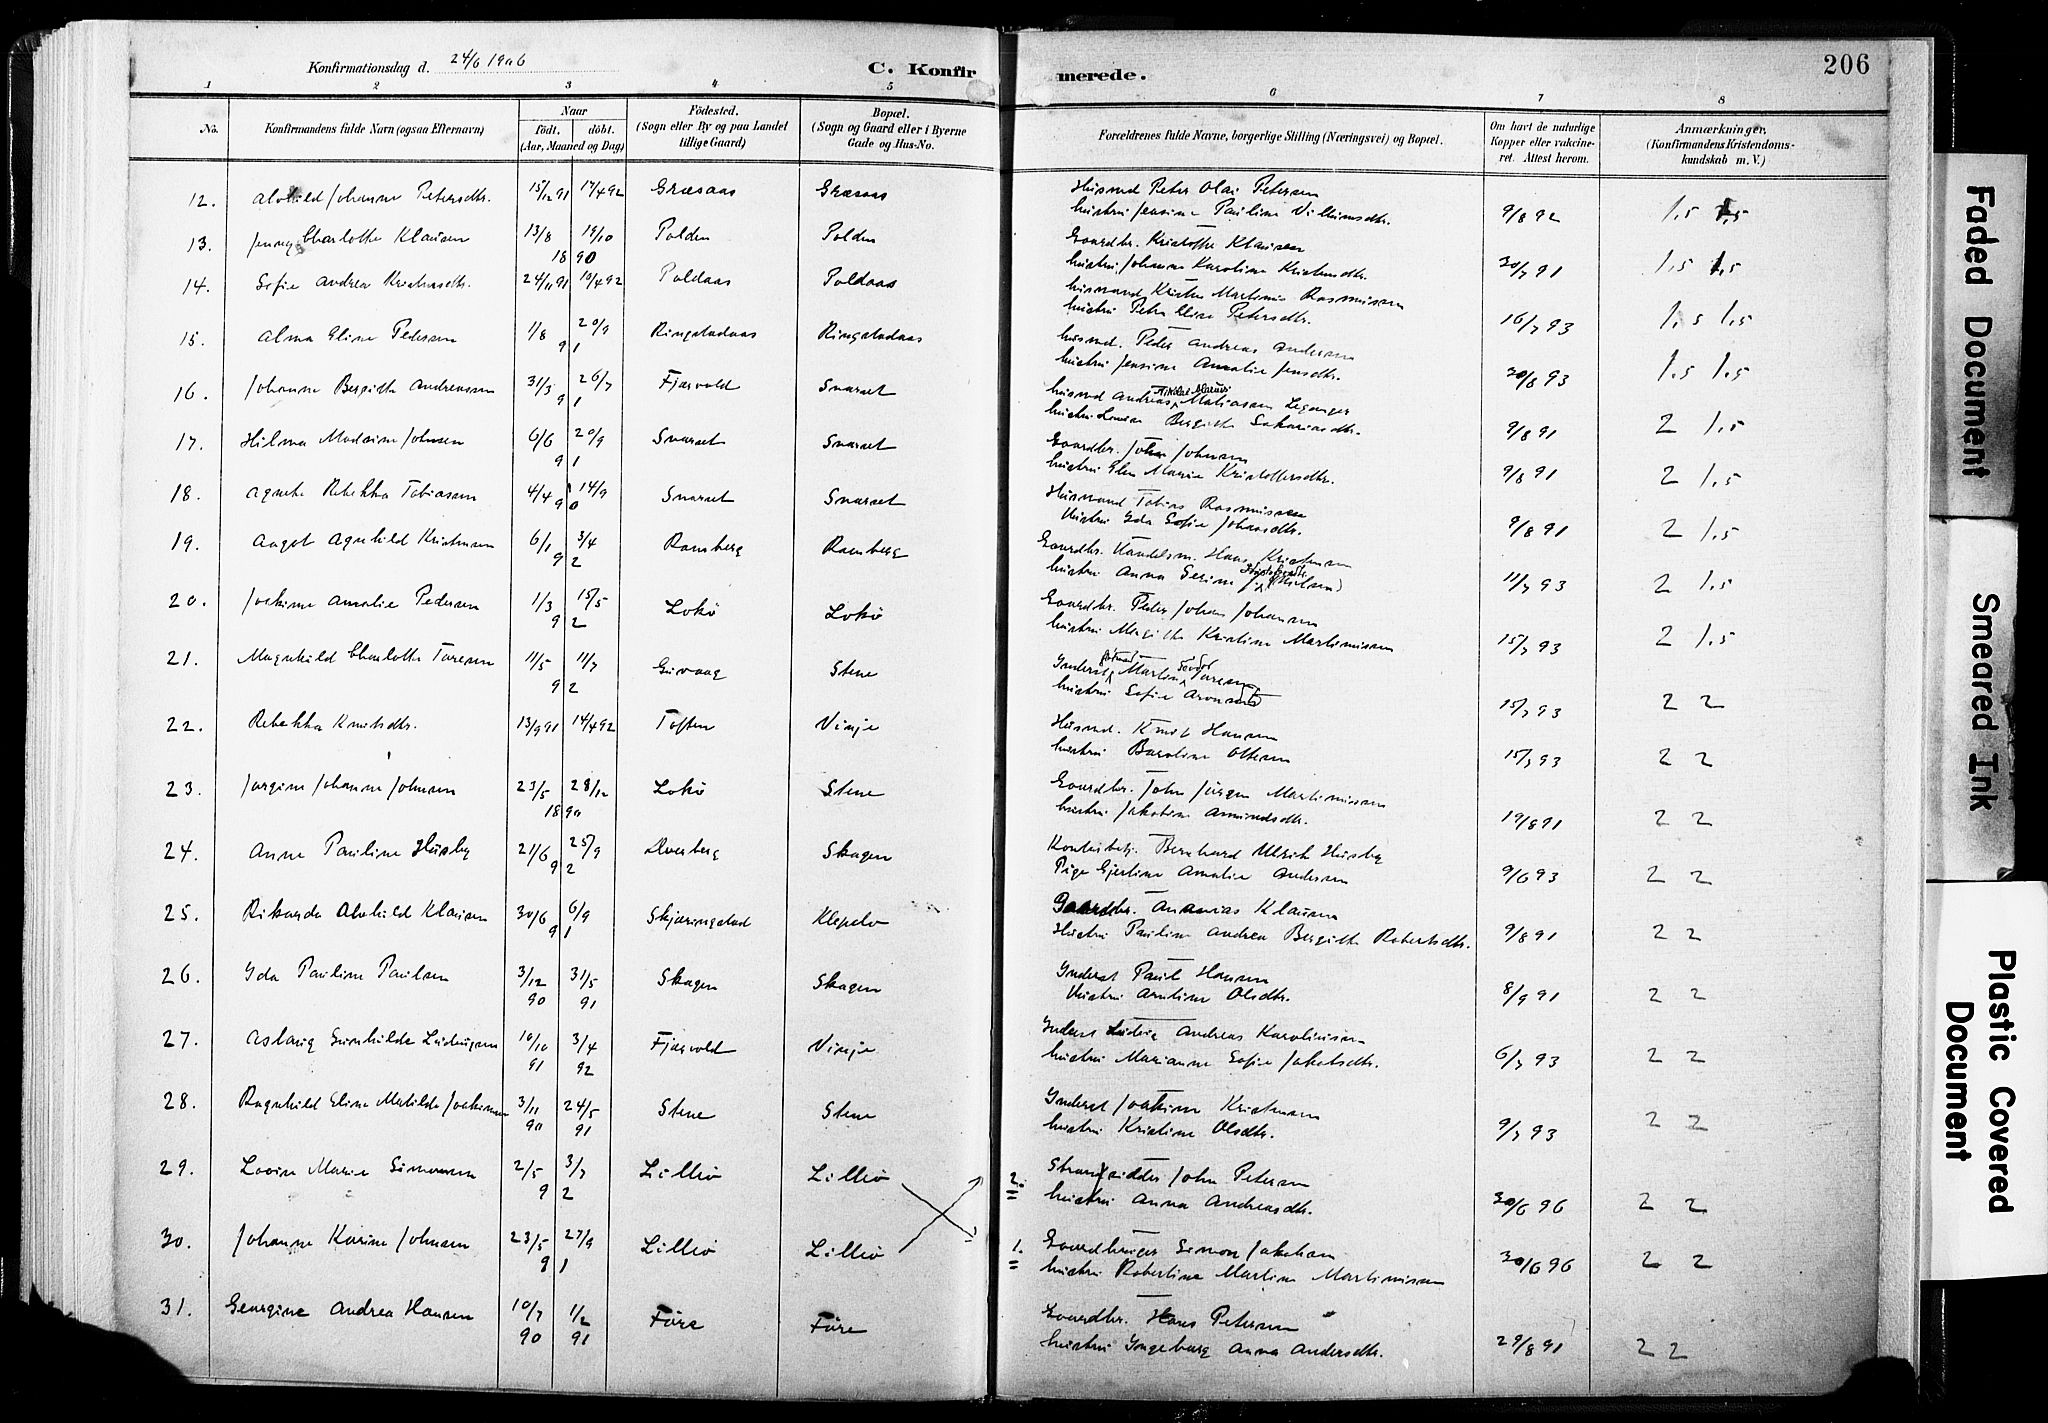 Konfirmationsdag d. 24/6 1906
C. Konfir
merede.
206
1 2 3 4 5 6 7 8
No.
Konfirmandens fulde Navn (ogsaa Efternavn)
Naar
født. døbt.
(Aar, Maaned og Dag)
Fødested.
(Sogn eller By og paa Landet
tillige Gaard)
Bopæl.
(Sogn og Gaard eller i Byerne
Gade og Hus-No.
Forældrenes fulde Navne, borgerlige Stilling (Næringsvei) og Bopæl.
Om havt de naturlige
Kopper eller vakcine-
ret. Attest herom.
Anmærkninger.
(Konfirmandens Kristendoms-
kundskab m. V.)
12. Alvhild Johanne Petersdtr. 15/12 91 17/4 92 Græsaas Græsaas
Husmd Peter Olai Petersen
hustru Jensine Pauline Vilhumsdtr. 9/8 92 1,5 1,5
13. Jenny Charlotte Klausen 13/8 19/10 Polden Polden
18 90
Gaardbr. Kristoffer Klausen
hustru Johanna Karoline Kristensdtr. 30/7 91 1,5 1,5
14. Sofie Andrea Kristensdtr. 24/11 91 19/4 92 Poldaas Poldaas
husmand Kristen Martinus Rasmussen
hustru Petra Elise Petersdtr. 16/7 93 1,5 1,5
15. Alma Eline Pedersen 1/8 20/9 Ringstadaas Ringstadaas
9 1
husmd. Peder Andreas Andersen
hustru Jensine Amalie Jensdtr. 30/8 93 1,5 1,5
16. Johanne Bergithe Andreassen 31/3 26/7 Fjærvold Snarset
9 1
husmd Andreas Nikolai Magnus Matiassen Leganger
hustru Lovise Bergithe Sakariasdtr. 9/8 91 2 1,5
17. Hilma Madsine Johnsen 6/6 20/9 Snarset Snarset
9 1
Gaardbr. John Johnsen
hustru Elen Marie Kristoffersdtr. 9/8 91 2 1,5
18. Agnete Rebekka Tobiassen 4/4 14/9 Snarset Snarset
9 0
Husmand Tobias Rasmussen
Hustru Ida Sofie Johansdtr. 9/8 91 2 1,5
19. Aagot Agnhild Kristensen 6/1 3/4 Ramberg Ramberg
9 2
Gaardbr. Handelsm. Hans Kristensen
hustru Anna Serine 11/7 93 2 1,5
20. Joakime Amalie Pedersen 1/3 15/5 Lokø Lokø
9 2
Gaardbr. Peder Johan Johansen
hustru Margithe Kristine Martinussen 15/7 93 2 1,5
21. Magnhild Charlotte Toresen 11/5 11/7 Guvaag Stene
9 2
Inderst Martin Toresen
hustru Sofie 15/7 93 2 2
22. Rebekka Knutsdtr. 13/9 91 14/4 92 Toften Vinje
Husmd. Knut Hansen
hustru Baroline Ottesen 15/7 93 2 2
23. Jørgine Johanne Johnsen 23/5 28/12 Lokø Stene
18 90
Gaardbr. John Jørgen Martinussen
hustru Jakobine Amundsdtr. 19/8 91 2 2
24. Anne Pauline Husby 21/6 25/9 Dverberg Skagen
9 2
Kontorbetj. Bernhard Ulrik Husby
Pige Gjertine Amalie Andersen 9/6 93 2 2
25. Rikarda Alvhild Klausen 30/6 6/9 Skjæringstad Klepelv
9 1
Gaardbr. Ananias Klausen
Hustru Pauline Andrea Bergithe Robertsdtr. 9/8 91 2 2
26. Ida Pauline Paulsen 3/12 31/5 Skagen Skagen
90 91
Inderst Paul Hansen
Hustru Arntine Olsdtr. 8/9 91 2 2
27. Aslaug Gunhilde Ludvigsen 10/10 3/4 Fjærvold Vinje
91 92
Inderst Ludvig Andreas Karoliusen
hustru Marianne Sofie Jakobsdtr. 6/7 93 2 2
28. Ragnhild Eline Matilde Joakimsen 3/11 24/5 Stene Stene
90 91
Inderst Joakim Kristensen
hustru Kristine Olsdtr. 9/7 93 2 2
29. Lovise Marie Simonsen 2/5 3/7 Lilleø Lilleø
9 2
2. Strandsidder John Petersen
hustru Anna Andreasdtr. 30/6 96 2 2
30. Johanne Karine Johnsen 23/5 27/9 Lilleø Lilleø
9 1
1. Gaardbruger Simon Jakobsen
hustru Robertine Martine Martinussen 30/6 96 2 2
31. Georgine Andrea Hansen 10/7 1/2 Føre Føre
90 91
Gaardbr. Hans Petersen
hustru Ingeborg Anna Andersdtr. 29/8 91 2 2
Faded Document
Smeared Ink
Plastic Covered
Document